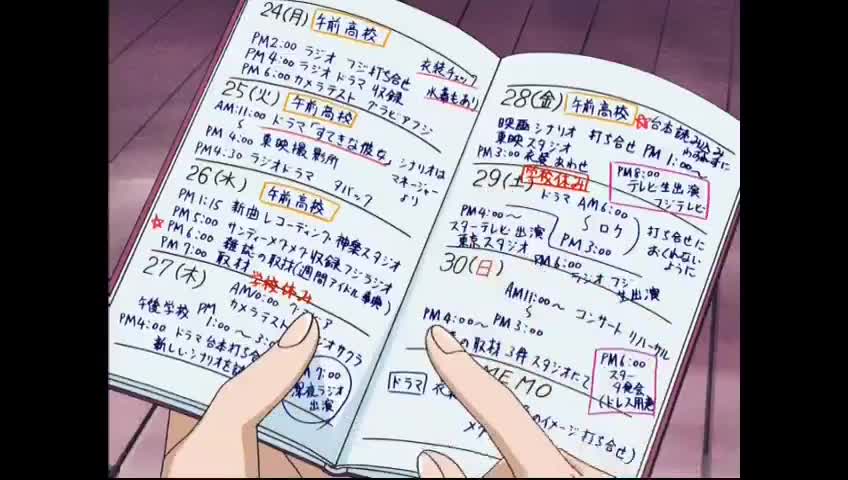 24(月) 午前高校
PM2:00 ラジオ フジ打ち合せ 衣装チェック
PM4:00 ラジオドラマ 収録 水着もあり
PM6:00 カメラテスト グラビアフジ
25(火) 午前高校
AM11:00 ドラマ「すてきな彼女」 シナリオは
〜 マネージャー
PM4:00 東映撮影所 より
PM4:30 ラジオドラマ アバック
26(水) 午前高校
PM1:15 新曲レコーディング 神楽スタジオ
PM5:00 サンディーメグメグ収録 フジラジオ
☆PM6:00 雑誌の取材(週間アイドル専映)
PM7:00 取材
27(木) 学校休み
AM10:00
午後学校 PM カメラテスト
1:00〜3:
PM4:00 ドラマ台本打ち合
新しいシナリオを
PM7:00
深夜ラジオ
出演
28(金) 午前高校 ☆台本読み込み
わすれずに
映画シナリオ 打ち合せ PM1:00〜
東映スタジオ
PM3:00 衣装あわせ
PM8:00
テレビ生出演
フジテレビ
29(土) 学校休み
ドラマ AM6:00
〜ロケ
PM3:00
打ち合せに
おくれない
ように
PM4:00〜
スターテレビ出演
東京スタジオ
PM6:00
ラジオ フジ
生出演
30(日)
AM11:00〜 コンサートリハーサル
〜
PM3:00
PM4:00〜
の取材 3件 スタジオたて
PM6:00
スター
夕食会
(ドレス用意
MEMO
ドラマ
のイメージ打ち合せ)